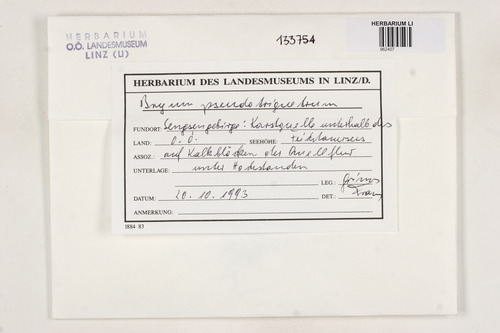 HERBARIUM
O.Ö. LANDESMUSEUM
LINZ (LI)
133754
HERBARIUM LI
962407
HERBARIUM DES LANDESMUSEUMS IN LINZ/D.
Bryum pseudotriquetrum
FUNDORT: Sengsengebirge: Karstquelle unterhalb des
LAND: O.Ö. SEEHÖHE:
ASSOZ.: auf Kalkblöcken der Quellflur
UNTERLAGE: unter Hochstauden
LEG.: Grims
DATUM: 20.10.1993 DET.: Franz
ANMERKUNG:
1884 83